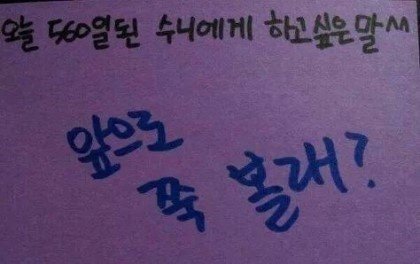 오늘 560일된 수니에게 하고싶은말^^
앞으로
쭉 볼래?